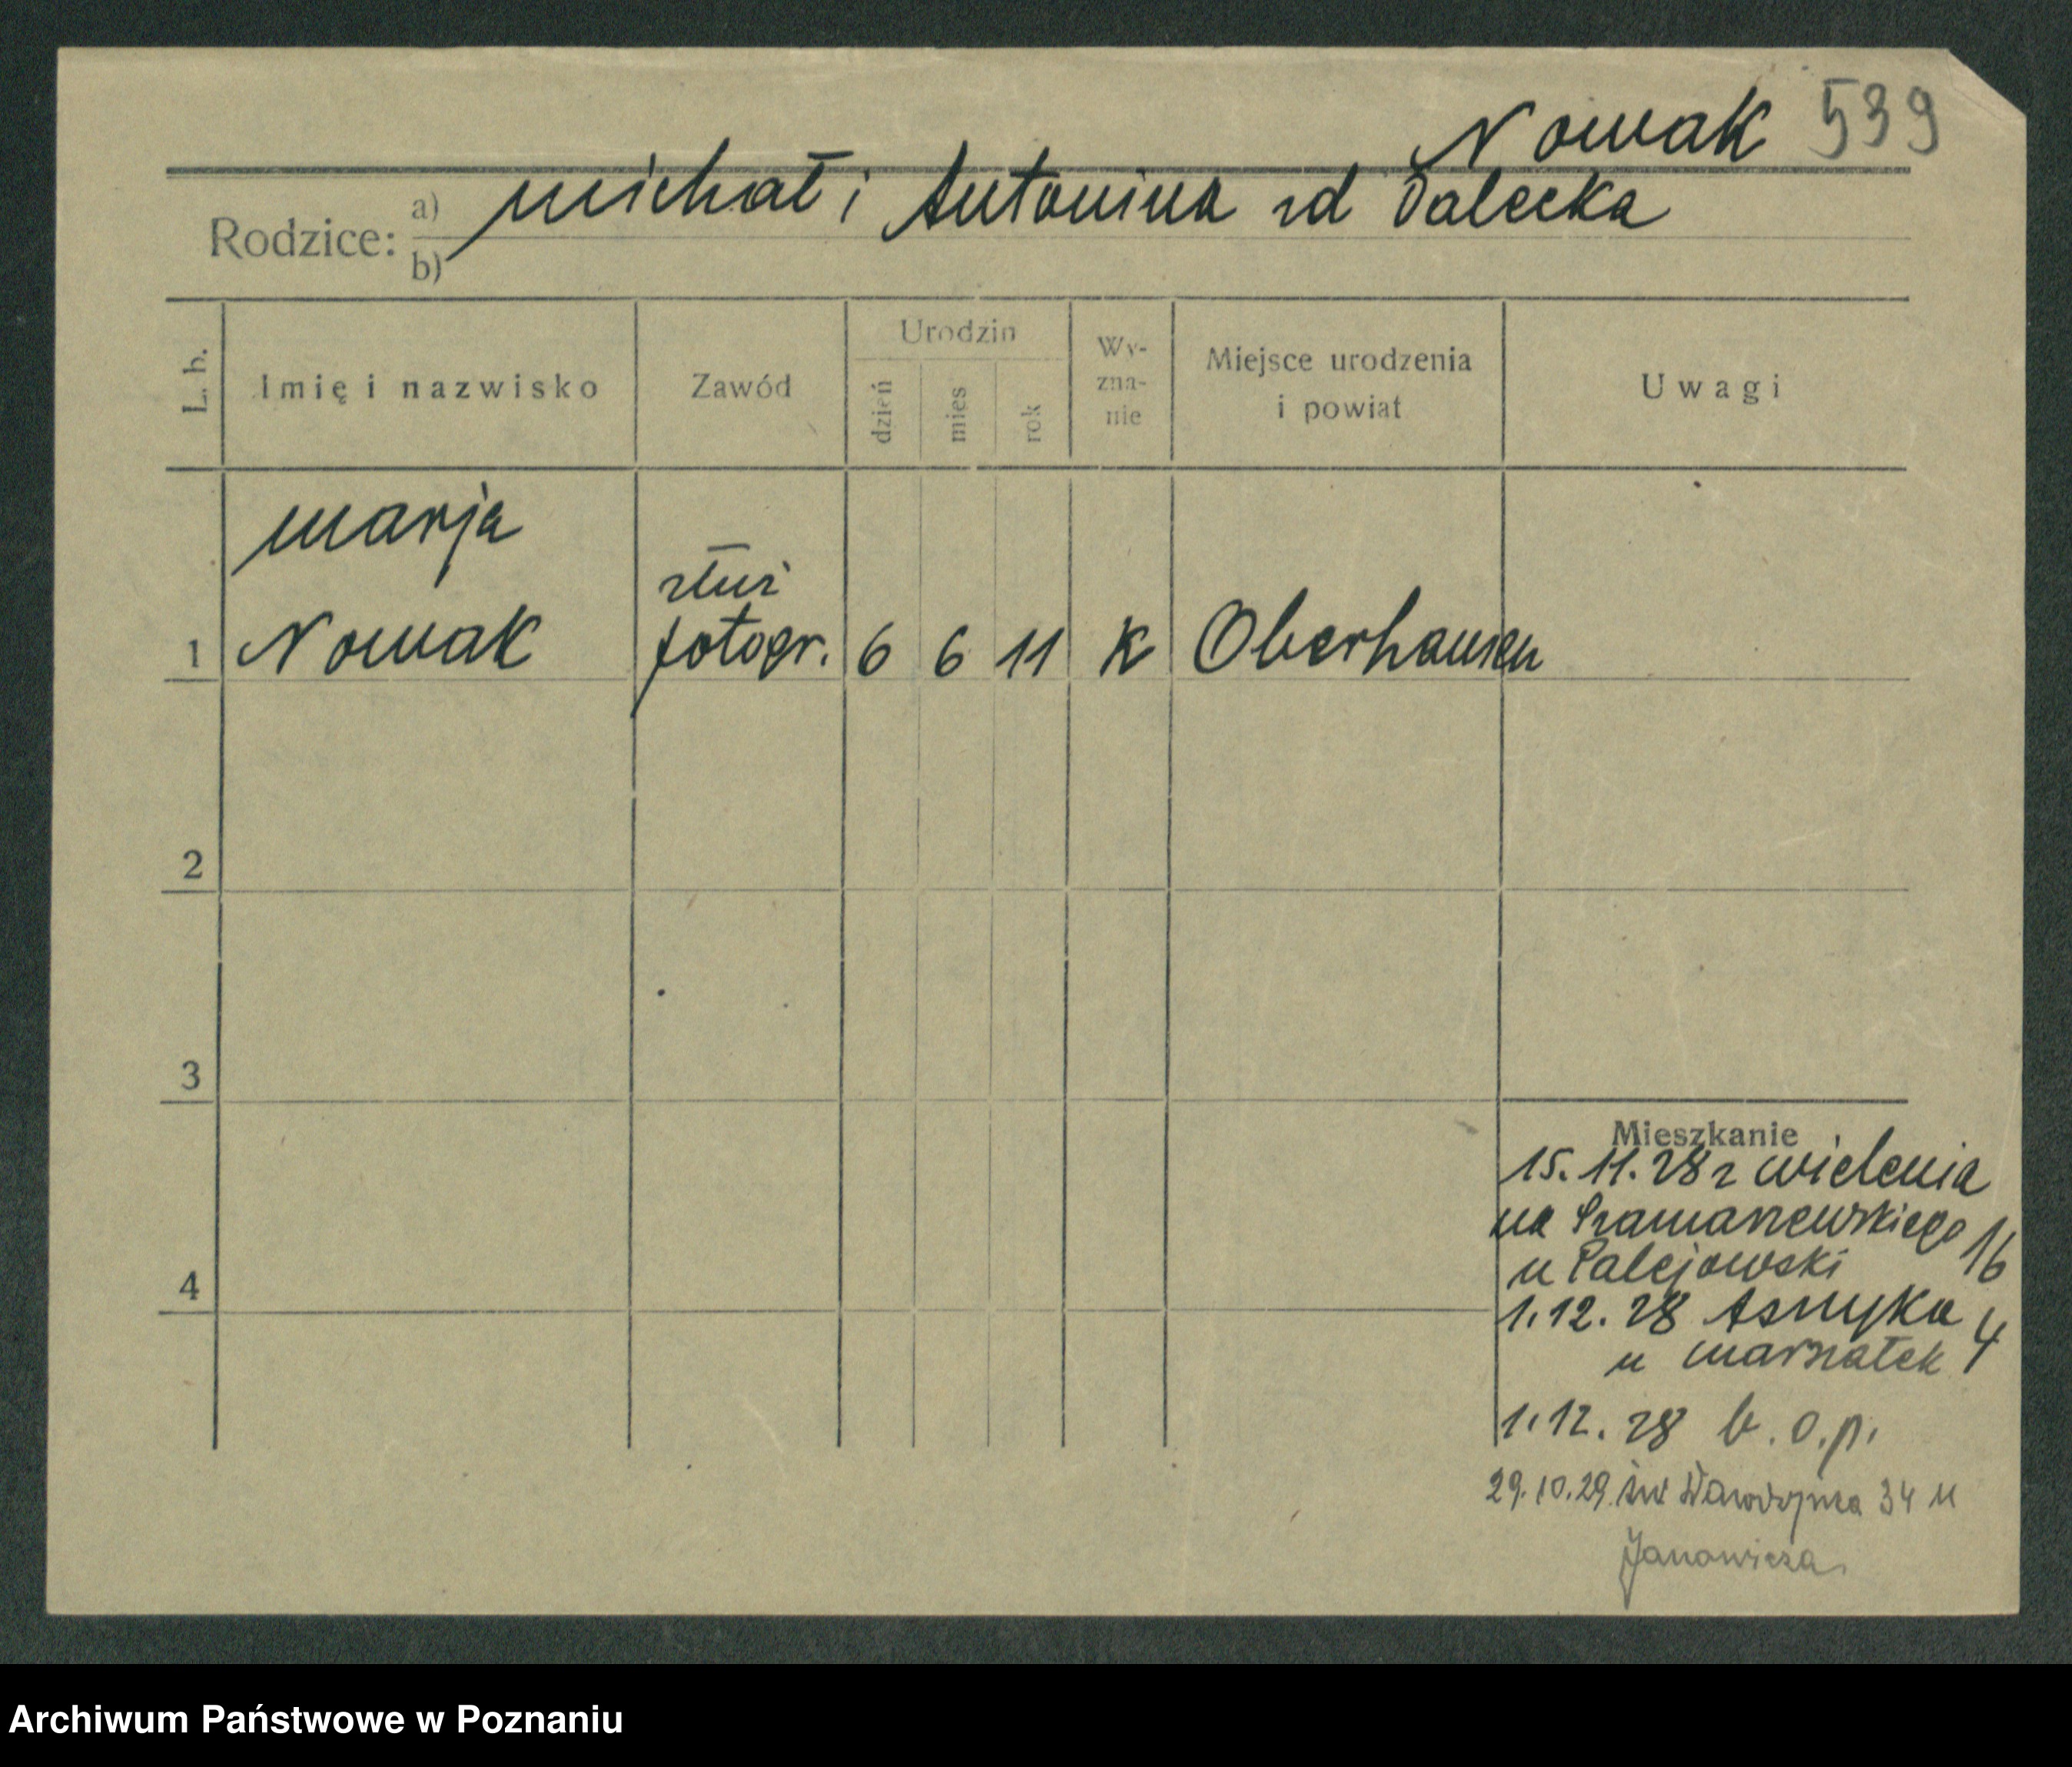 Nowak 539
Rodzice: a) Michał i Antonina zd Palecka
b)
L. b.
Imię i nazwisko
Zawód
Urodzin
dzień
mies
rok
Wy-
zna-
nie
Miejsce urodzenia
i powiat
Uwagi
Marja
służ
1 Nowak fotogr. 6 6 11 K Oberhausen
2
3
Mieszkanie
15.11.28 z Wielenia
na Szamarzewskiego 16
u Palejowski
4
1.12.28 Asnyka 4
u Marszałek
1.12.28 b.o.p.
29.10.29. św Wawrzyńca 34 u
Janowicza
Archiwum Państwowe w Poznaniu